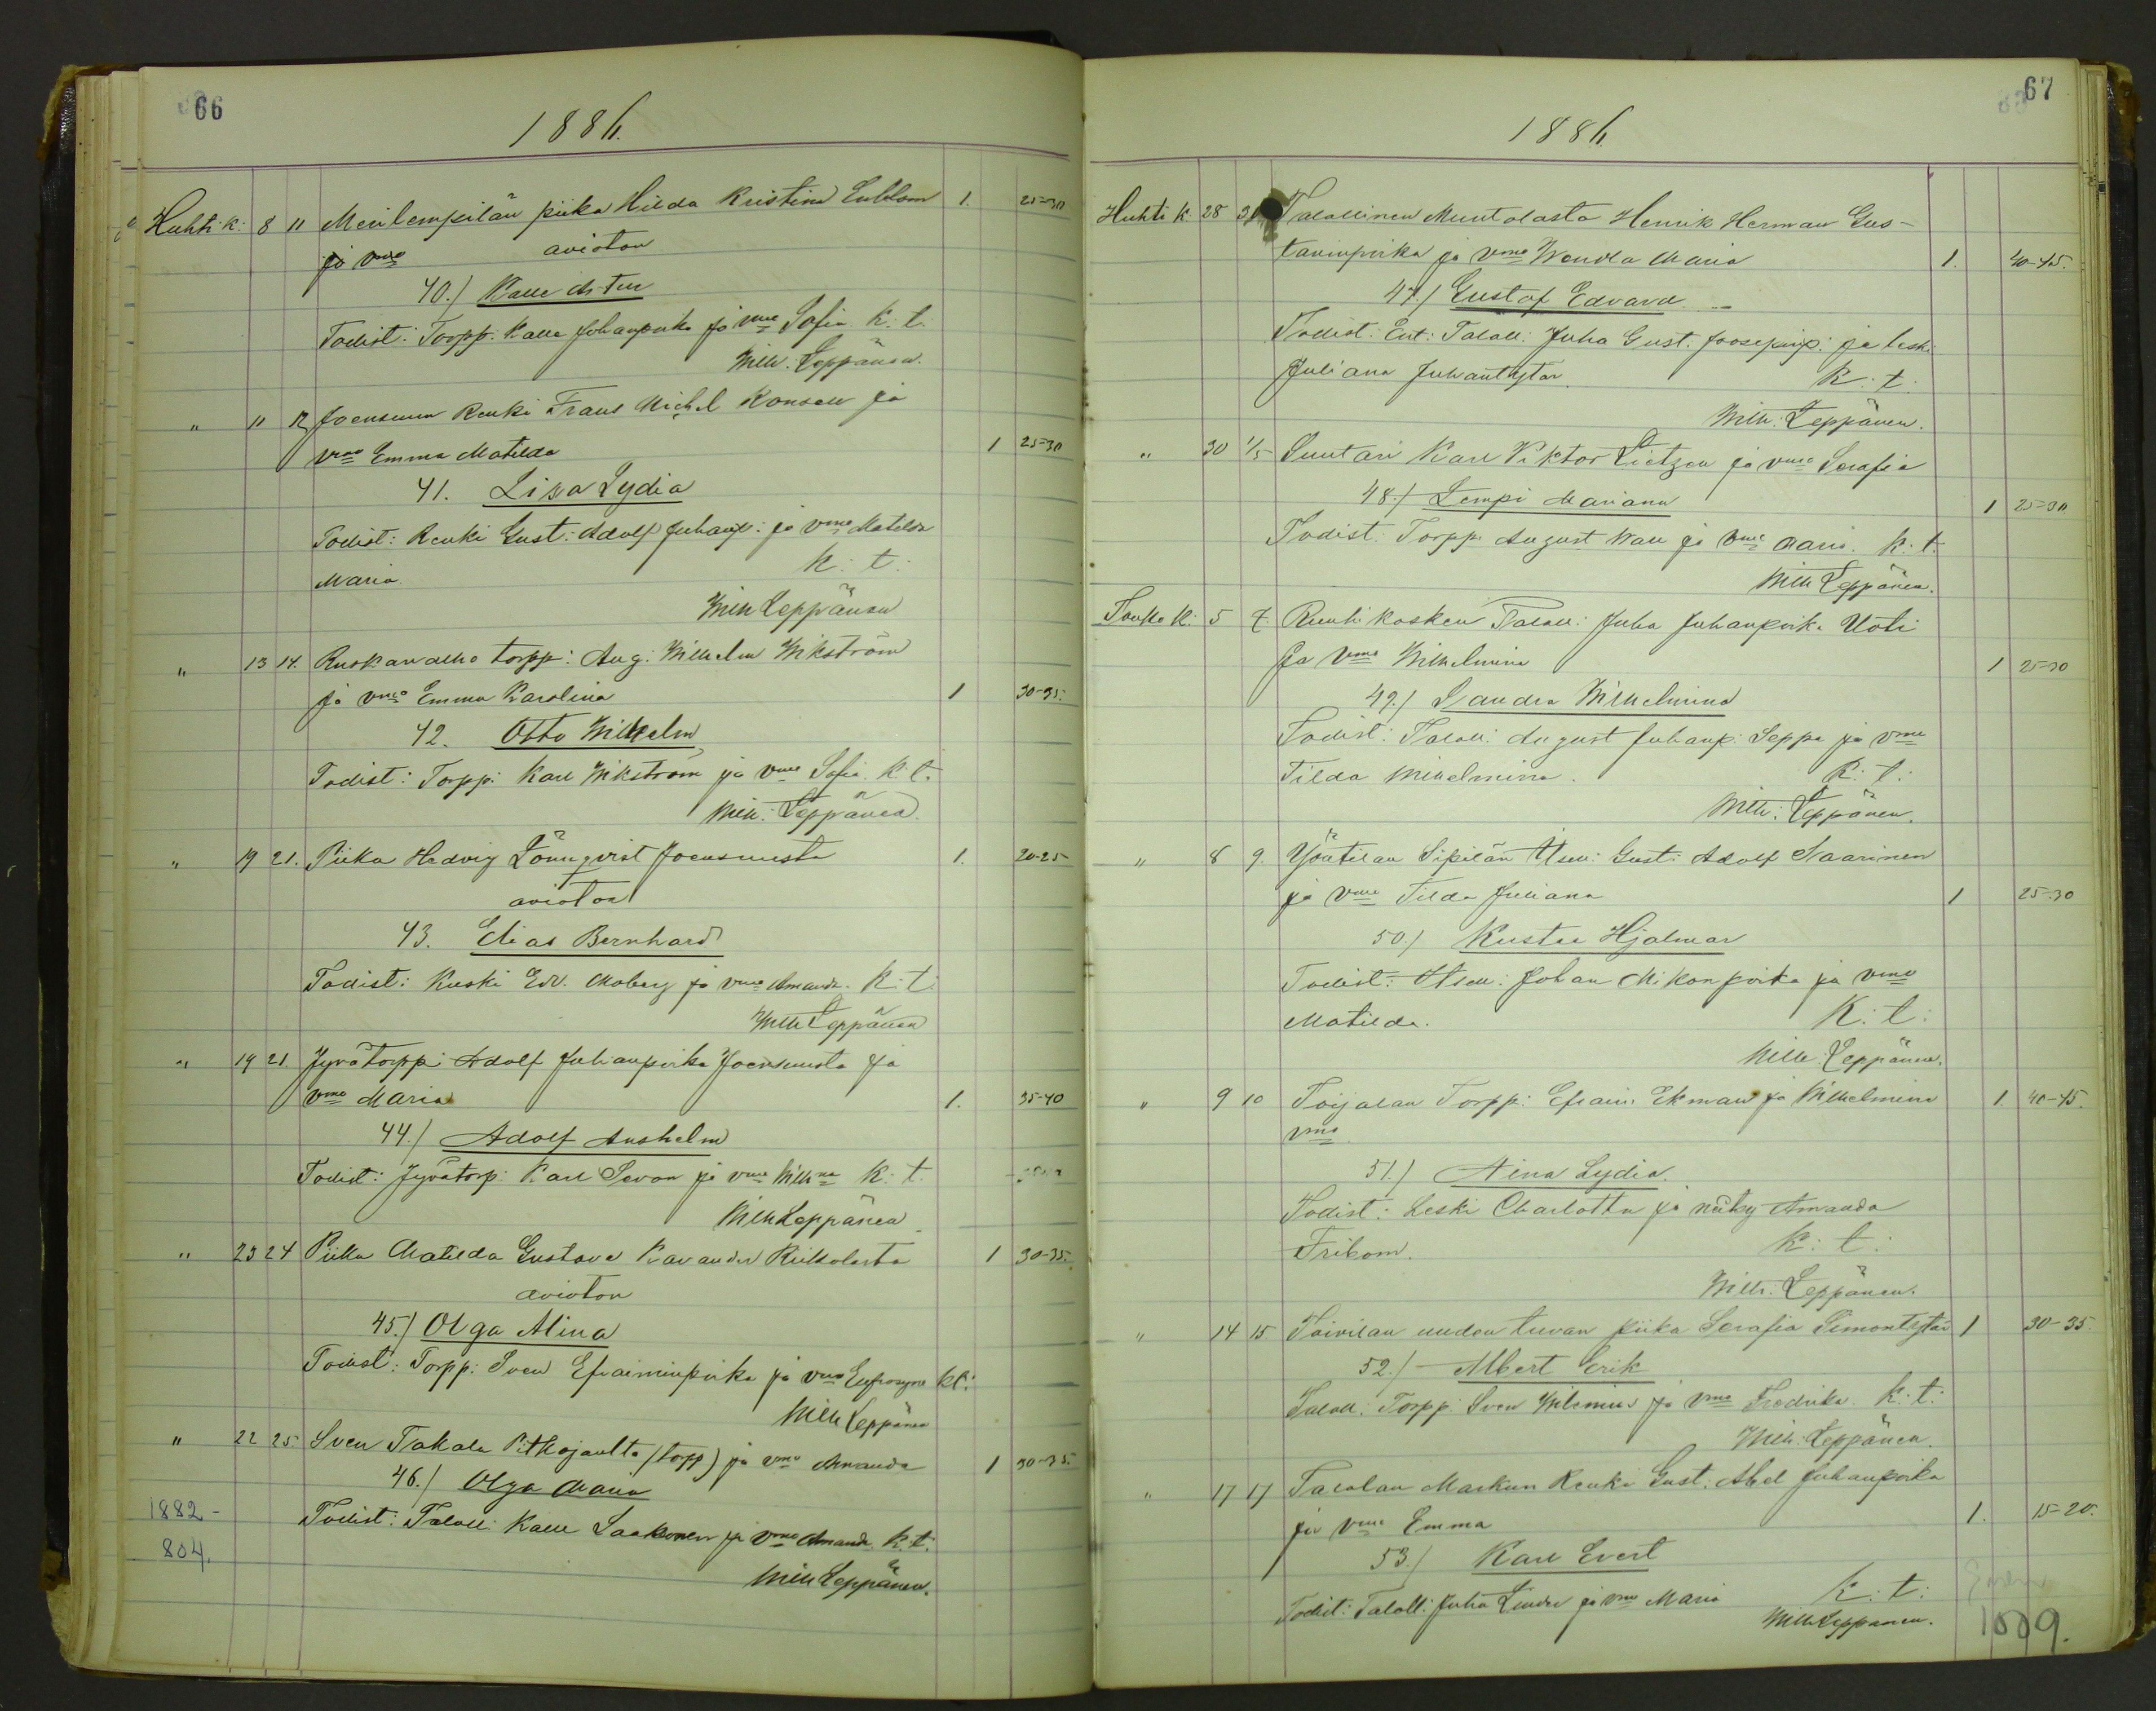 66
1886.
Huhti k: 8 11 Meinlempilän piika Hilda Kristina Lublom 1. 25-30
ja vmo avioton
40.) Kalle Artur
Todist: Torpp: Kalle Juhanpoika ja vmo Sofia. K: t.
Wilh: Leppänen.
" 11 12 Joensuun Renki Frans Michel Konsell ja
vmo Emma Matilda 1 25-30
41. Lisa Lydia
Todist: Renki Gust: Adolf Juhanp: ja vmo Matilda
Maria. K: t:
Wilh Leppänen
" 13 14. Ruskanalho torpp: Aug: Wilhelm Wikström
ja vmo Emma Karolina 1 30-35.
42. Otto Wilhelm
Todist: Torpp: Karl Wikström ja vmo Sofia. K: t.
Wilh: Leppänen.
" 19 21. Piika Hedvig Lönnqvist Joensuusta 1. 20-25
avioton
43. Elias Bernhard
Todist: Kuski Edv. Moberg ja vmo Amanda. K: t:
Wilh Leppänen
" 19 21. Jyvätorpp: Adolf Juhanpoika Joensuusta ja
vmo Maria 1. 35-40
44.) Adolf Anshelm
Todist: Jyvätorp: Karl Savon ja vmo Wilhna K: t.
Wilh Leppänen
" 23 24 Piika Matilda Gustava Kavander Riikolasta 1 30-35.
avioton
45.) Olga Alina
Todist: Torpp: Sven Efraiminpoika ja vmo Eufrosyne kt:
Wilh Leppänen
" 22 25. Sven Takala Pitkäjaulta (torpp) ja vmo Amanda 1 30-35.
46.) Olga Maria
1882-
Todist: Talolli: Kalle Saakonen ja vmo Amand. K: t:
804.
Wilh Leppänen.
67
1886.
Huhti k 28 Talollinen Muntolasta Henrik Herman Gus-
tavinpoika ja vmo Wendla Maria 1. 40-45.
47.) Gustaf Edvard
Todist: Ent: Talall: Juha Gust. Joosepinp: ja leski
Juliana Juhantytar. K: t:
Wilh: Leppänen.
" 30 1/5 Suutari Karl Viktor Lietzen ja vmo Serafia
48.) Lempi Mariana 1 25-30
Todist: Torpp August Wall ja vmo Maria. K: t.
Wilh Leppänen.
Touko k: 5 7. Ruuhikosken Talall: Juha Juhanpoika Uoti
ja vmo Wilhelmina 1 25-30
49.) Sandra Wilhelmina
Todist: Talall: August Juhanp: Seppa ja vmo
Tilda Wilhelmina. K: t:
Wilh: Leppänen.
" 8 9. Yöntilan Sipilän Itsell: Gust: Adolf Saarinen
ja vmo Tilda Juliana 1 25-30
50.) Kustaa Hjalmar
Todist: Itsell: Johan Mikonpoika ja vmo
Matilda. K: t:
Wilh: Leppänen.
" 9 10 Toijalan Torpp: Efraim Ekman ja Wilhelmina 1. 40-45.
vmo
51.) Aina Lydia.
Todist: Leski Charlotta ja neitsy Amanda
Fribom. K: t:
Wilh: Leppänen.
" 14 15 Toivilan uuden tuvan piika Serafia Simontytär 1 30-35
52.) Albert Erik
Talall: Torpp: Sven Wilenius ja vmo Fredrika. K: t:
Wilh: Leppänen.
" 17 17 Talolan Markun Renki Gust: Abel Juhanpoika
ja vmo Emma 1. 15-20.
53.) Karl Evert
Todist: Talolli: Juha Linder ja vmo Maria K: t:
Wilh Leppänen.
1009.